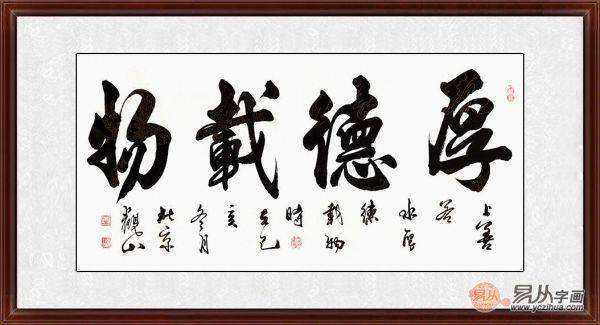 厚德載物
上善若水厚德載物時在己亥冬月北京觀山
易从字画
www.yczihua.com